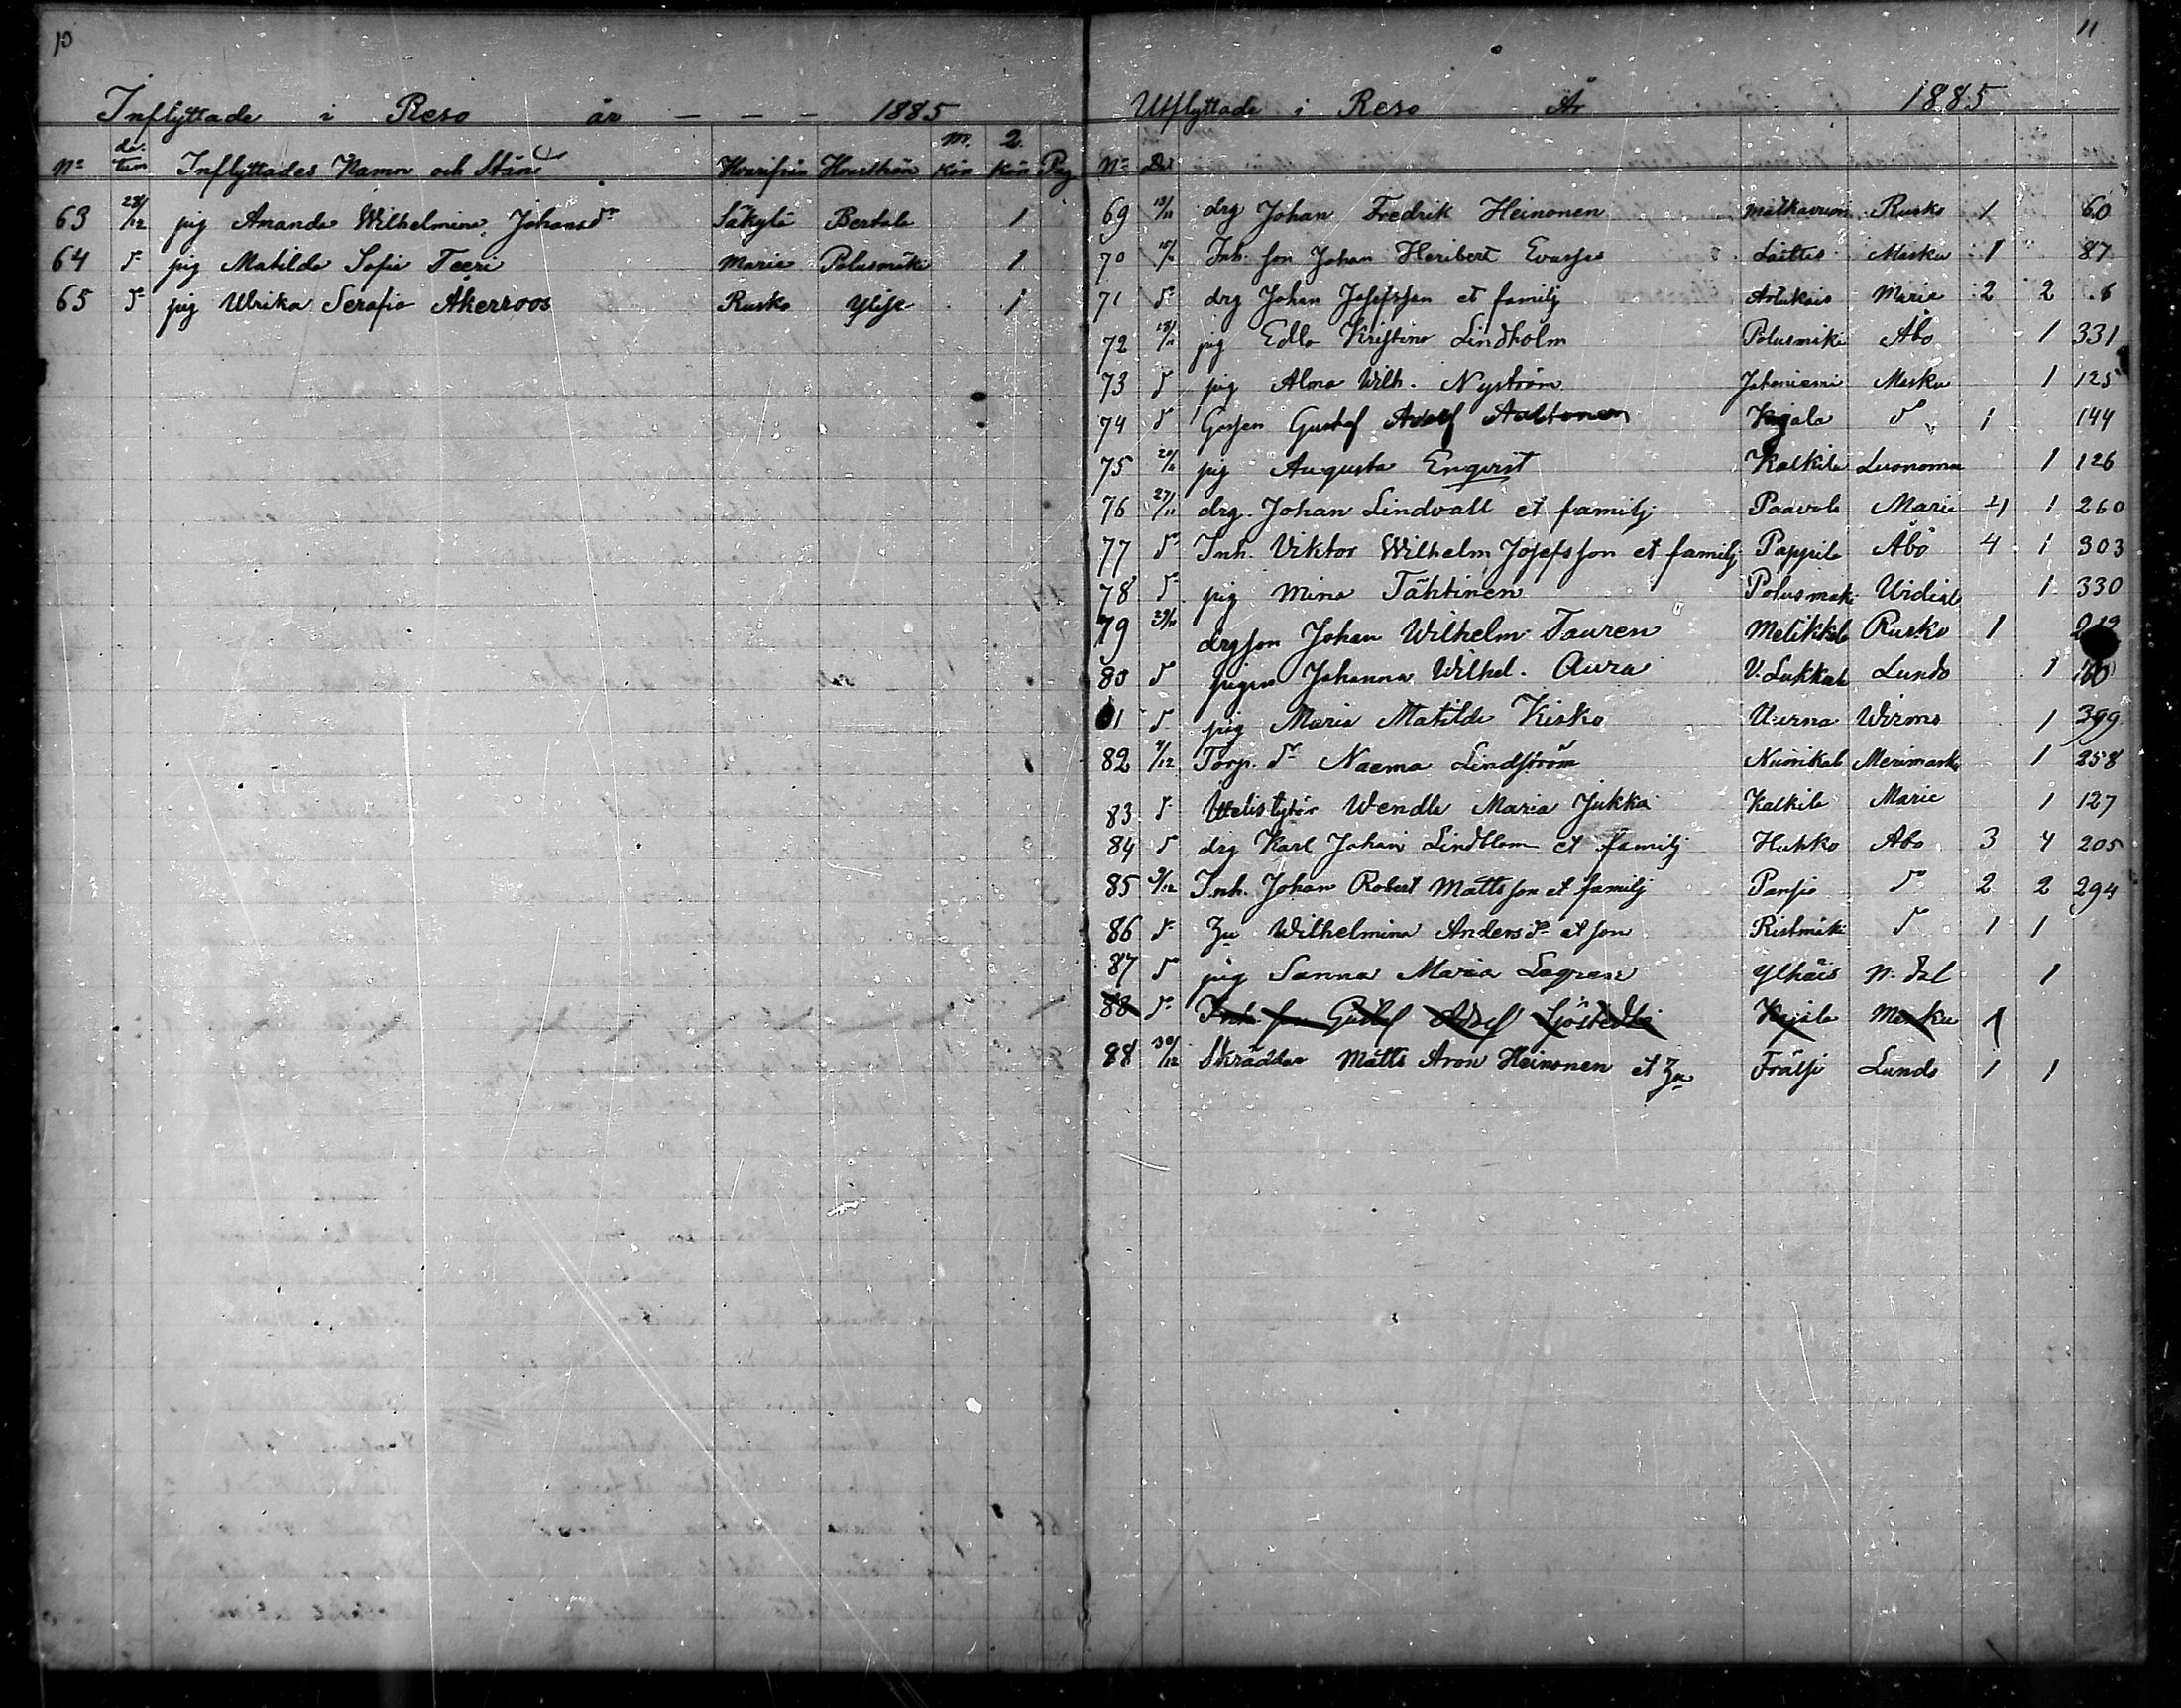 10
Inflyttade i Reso år - - - 1885
No datum Inflyttades Namn och Stånd Hvarifrån Hvarthän m. kön q. kön Pag
63 28/12 pig Amanda Wilhelmina Johansdr Säkylä Bertala 1
64 do pig Matilda Sofia Teeri Marie Polusmäki 1
65 do pig Ulrika Serafia Akerroos Rusko Ylije 1
11
Utflyttade i Reso År 1885
No Dat
69 13/11 drg Johan Fredrik Heinonen Matkavuori Rusko 1 60
70 15/11 Inh. son Johan Heribert Evasson Laittis Masku 1 87
71 do drg Johan Josefsson et familj Artukais Marie 2 2 6
72 18/11 pig Edla Kristina Lindholm Polusmäki Åbo 1 331
73 do pig Alma Wilh. Nyström Johaniemi Masku 1 125
74 do Gossen Gustaf Adolf Aaltonen Kujala do 1 144
75 20/11 pig Augusta Enqvist Kalkila Luonnonmaa 1 126
76 27/11 drg. Johan Lindvall et familj Paavola Marie 4 1 260
77 do Inh. Viktor Wilhelm Josefsson et familj Pappila Åbo 4 1 303
78 do pig Mina Tähtinen Polusmäki Virdois 1 330
79 29/11 drgson Johan Wilhelm Tauren Metikkala Rusko 1
80 do pigan Johanna Wilhel. Aura V. Lukkala Lundo 1 160
81 do pig Maria Matilda Kisko Uurna Wirmo 1 399
82 4/12 Torp. dr Naema Lindström Nuorikkala Merimasku 1 258
83 do Wendla Maria Jukka Kalkila Marie 1 127
84 do drg Karl Johan Lindblom et familj Huhko Åbo 3 4 205
85 9/12 Inh. Johan Robert Mattsson et familj Pansio do 2 2 294
86 do Za Wilhelmina Andersdr et son Ristimäki do 1 1
87 do pig Sanna Maria Lagran Ylhäis N. dal 1
88 do Inh. son Gustaf Adolf Sjöstedt Kujala Masku 1
88 30/12 Skräddar Matts Aron Heinonen et Za Frälsi Lundo 1 1